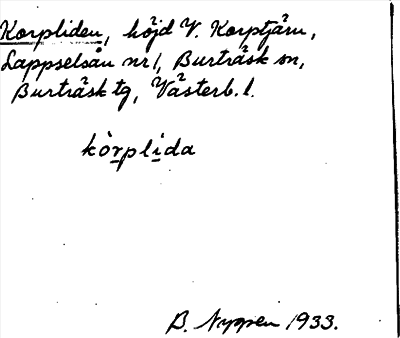 Korpliden, höjd V. Korptjärn,
Lappselsån nr 1, Burträsk sn,
Burträsk tg, Västerb. l.
kòrplida
B. Nyggen 1933.